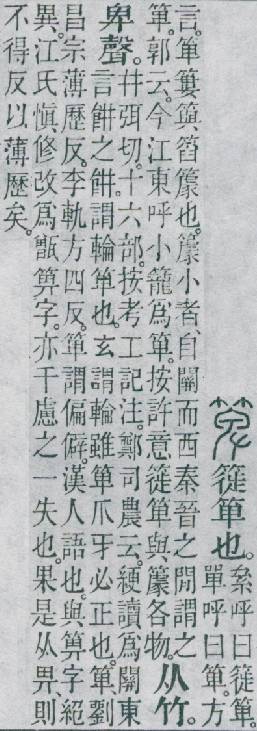 箄簁箄也。
絫呼曰簁箄。
單呼曰箄。方
言。箄簍籅筥䉛也。䉛小者、自關而西秦晉之閒謂之
箄。郭云。今江東呼小籠爲箄。按許意簁箄與䉛各物。
从竹。
卑聲。
幷弭切。十六部。按考工記注。鄭司農云。綆讀爲關東
言餠之餠。謂輪箄也。玄謂輪雖箄爪牙必正也。箄、劉
昌宗薄歷反。李軌方四反。箄謂偏僻。漢人語也。與箅字絕
異。江氏愼修改爲甑箅字。亦千慮之一失也。果是从畀、則
不得反以薄歷矣。